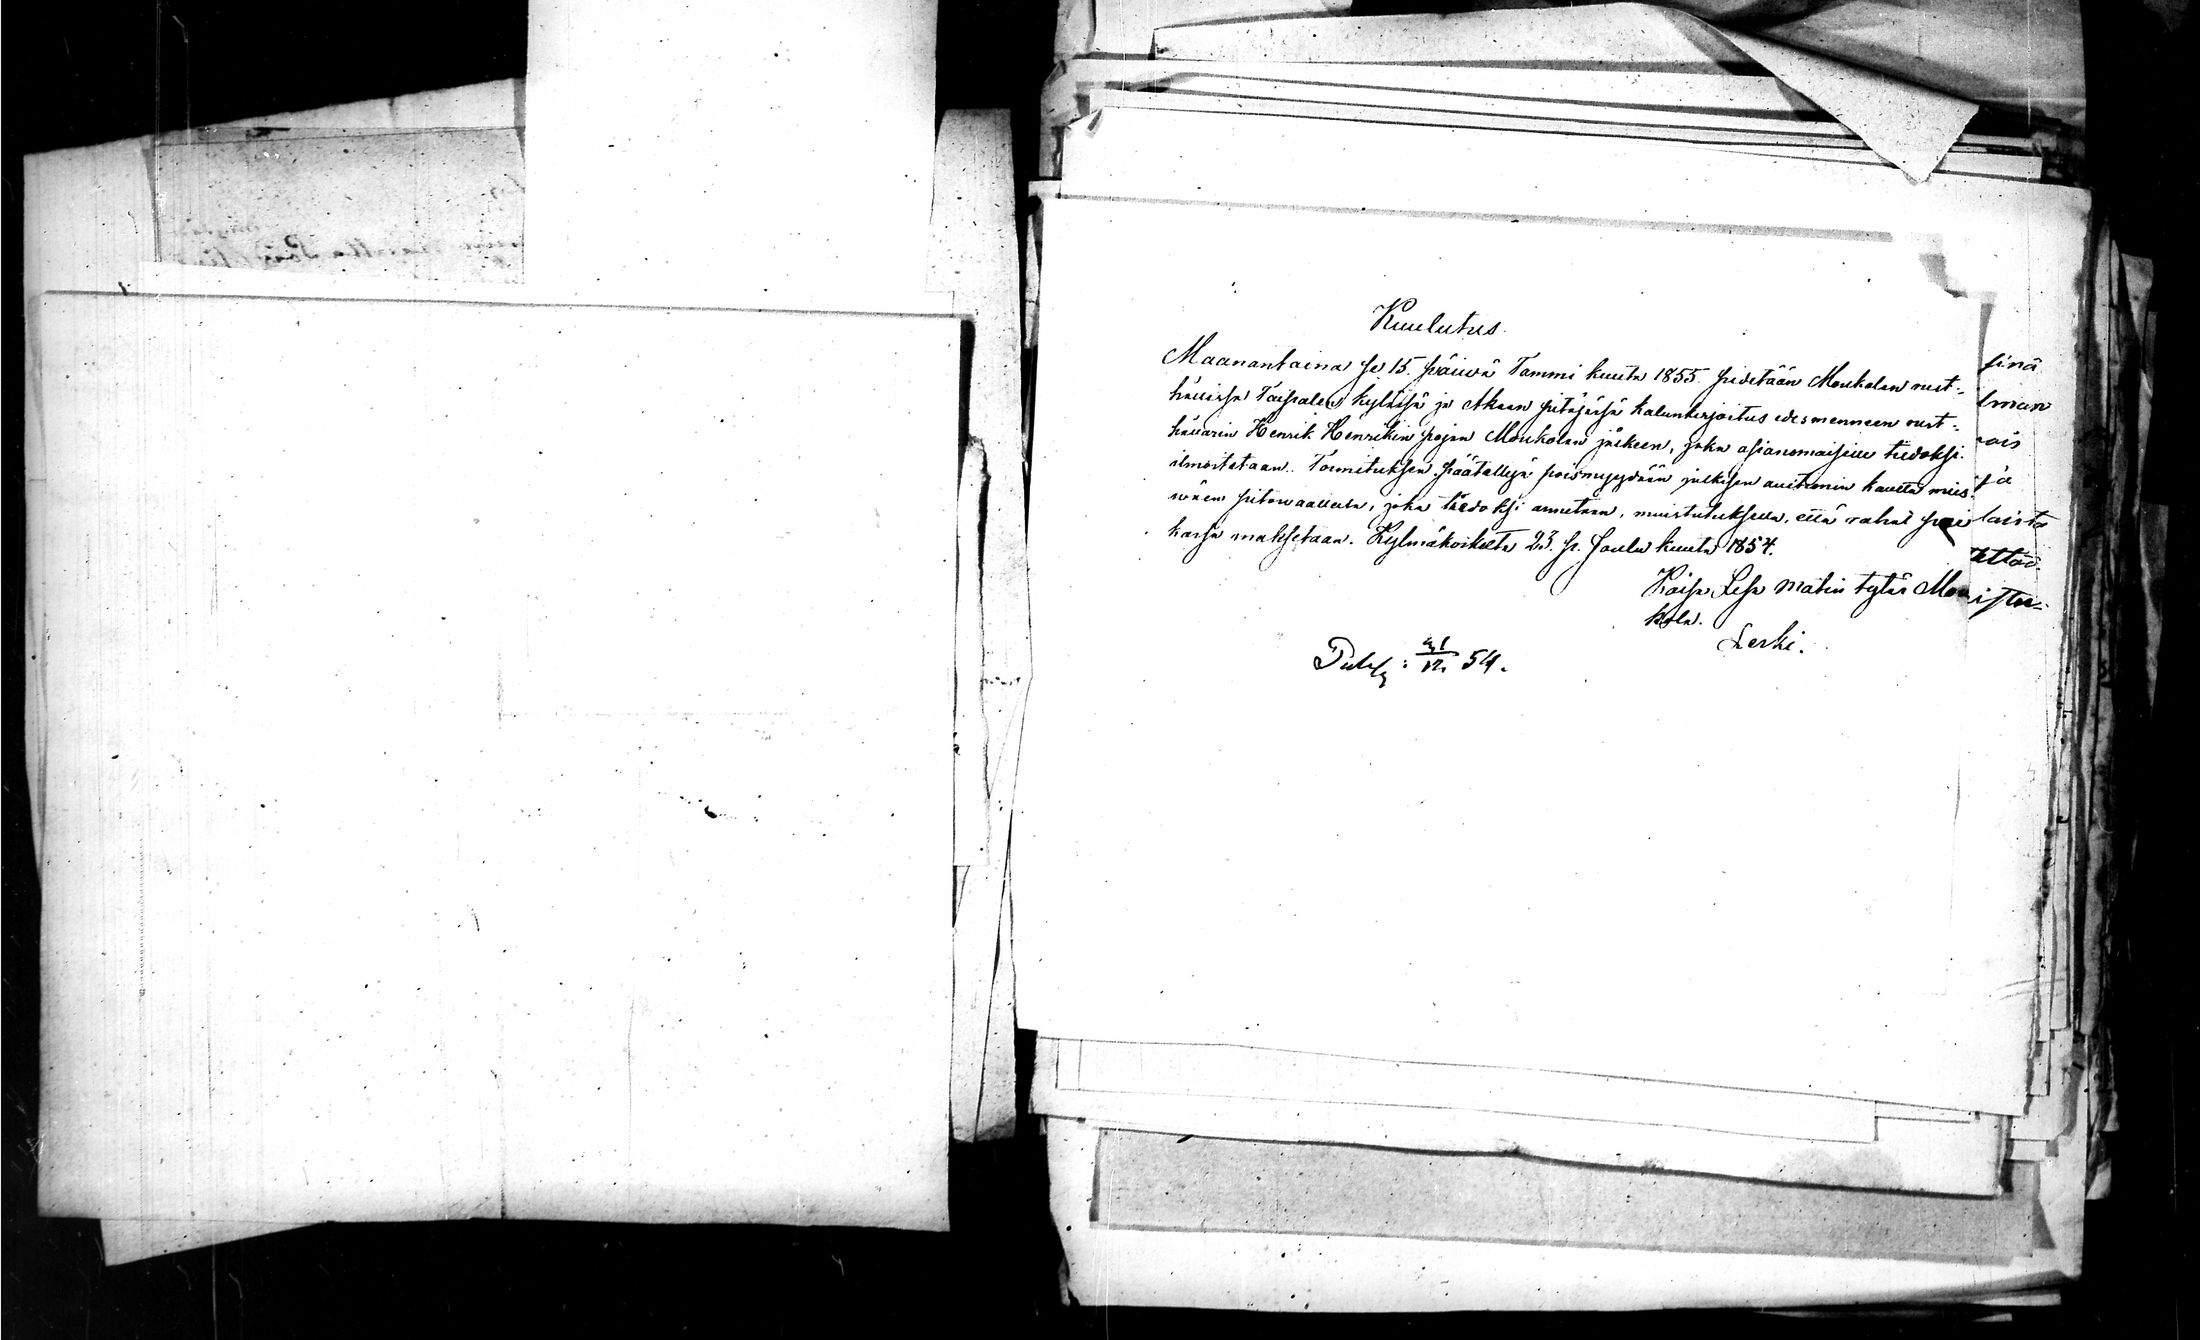 Kuulutus.
Maanantaina se 15. päiwä Tammi kuuta 1855. pidetään Moukolan rust-
hållissa Taipaleen kylässä ja Akaan pitäjässä kalunkirjoitus edesmenneen rust-
hållarin Henrik Henrikin pojan Moukolan jälkeen, joka asianomaisille tiedoksi
ilmoitetaan. Toimituksen päätettyä poismyydään julkisen auktionin kautta mies-
wäen pitowaatteita, joka tiedoksi annetaan, muistutuksella, että rahat
kassa maksetaan. Kylmäkoskelta 23. p. Joulu kuuta 1854.
Kaisa Lesa Matin tytär Mou
kola.
Leski.
Publ: 31/12 54.
sinä
lman
ois
sä
laista